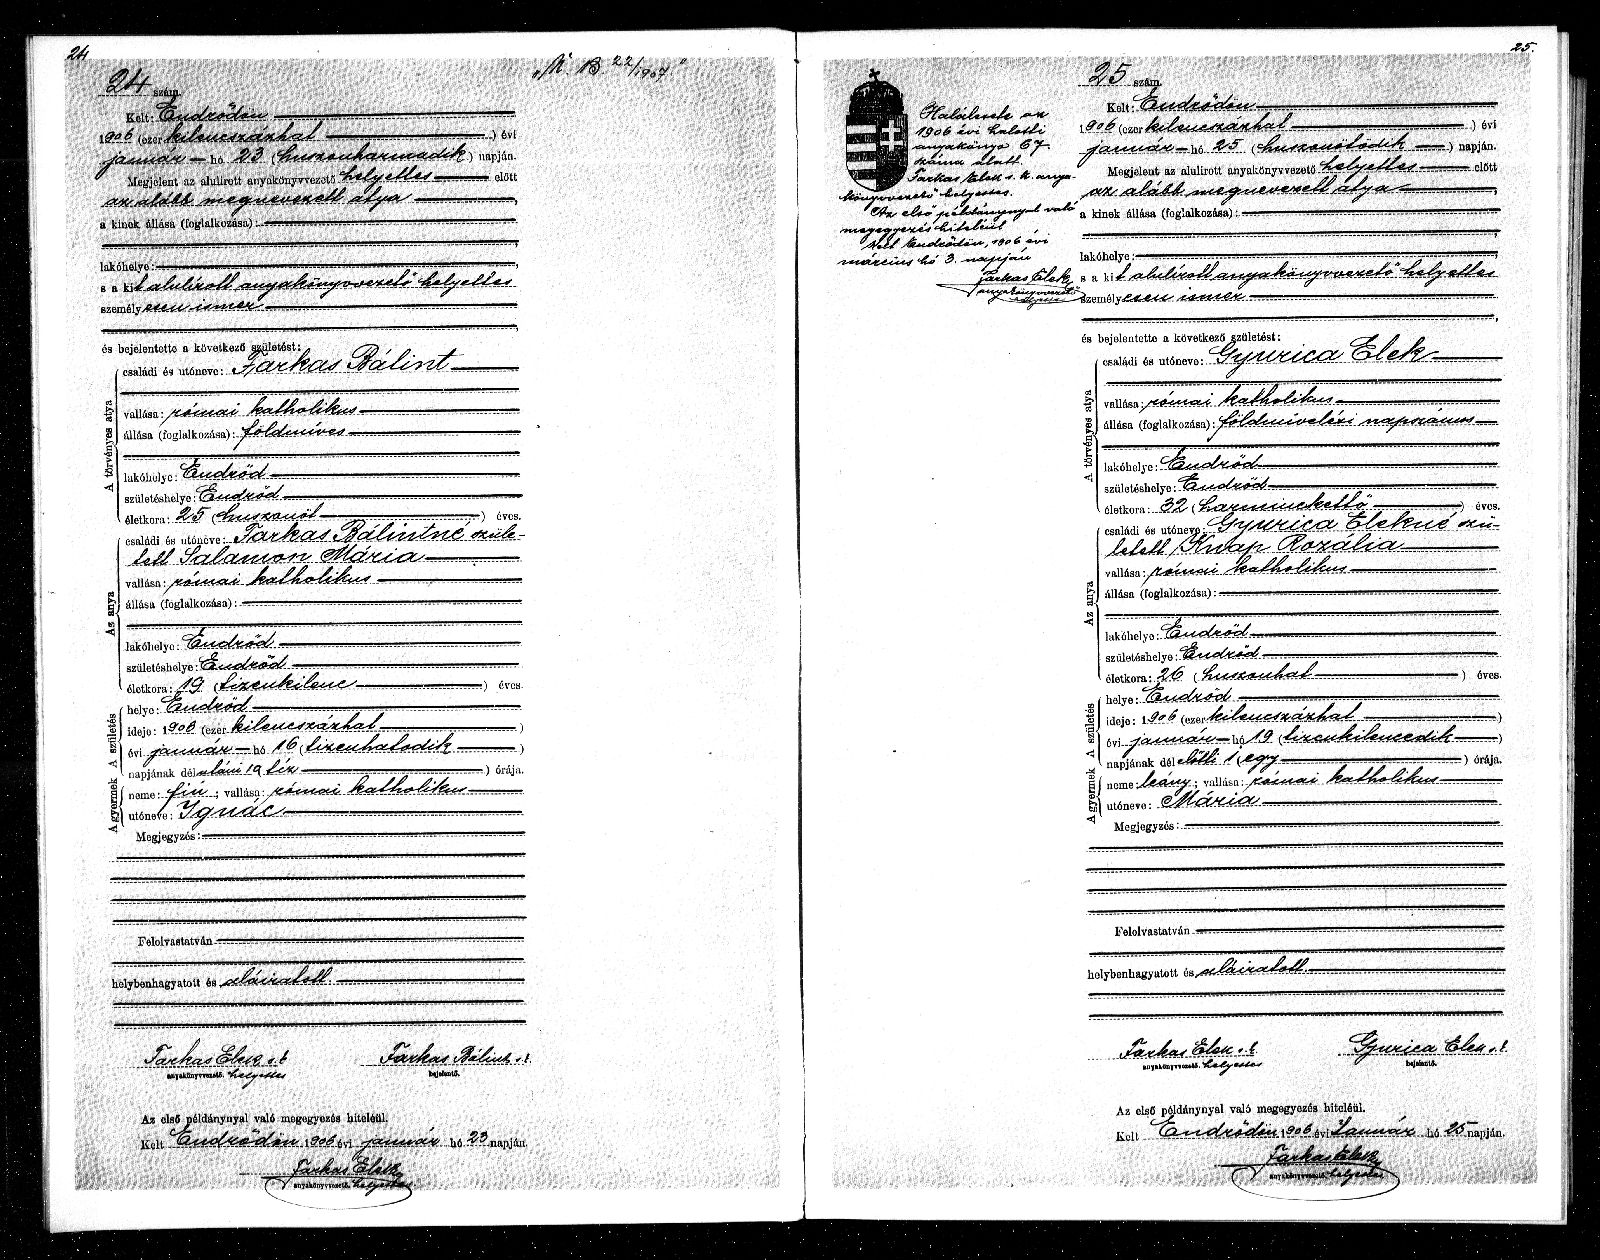 24
24 szám.
„M. B. 22/1907."
Kelt: Endrődön
1906 (ezer kilencszázhat ) évi
január hó 23 (huszonharmadik) napján.
Megjelent az alulirott anyakönyvvezető helyettes előtt
az alább megnevezett atya ,
a kinek állása (foglalkozása):
lakóhelye: ,
s a kit alulírott anyakönyvvezető helyettes
személyesen ismer
,
és bejelentette a következő születést:
A törvényes atya
családi és utóneve: Farkas Bálint
vallása: római katholikus
állása (foglalkozása): földmíves
lakóhelye: Endrőd
születéshelye: Endrőd
életkora: 25 (huszonöt ) éves.
Az anya
családi és utóneve: Farkas Bálintné szüle-
tett Salamon Mária
vallása: római katholikus
állása (foglalkozása):
lakóhelye: Endrőd
születéshelye: Endrőd
életkora: 19 (tizenkilenc ) éves.
A születés
helye: Endrőd
ideje: 1906 (ezer kilencszázhat )
évi január hó 16 (tizenhatodik )
napjának dél utáni 10 tíz ) órája.
A gyermek
neme: fiú ; vallása: római katholikus
utóneve: Ignác
Megjegyzés:
Felolvastatván
helybenhagyatott és aláiratott.
Farkas Elek s.k. Farkas Bálint s.k.
anyakönyvvezető. helyettes bejelentő.
Az első példánynyal való megegyezés hiteléül.
Kelt Endrődön 1906 évi január hó 23 napján.
Farkas Elek
anyakönyvvezető. helyettes
25.
25 szám.
Halálesete az
1906 évi halotti
anyakönyv 67
száma alatt.
Farkas Elek s. k. anya-
könyvvezető helyettes.
Az első példánynyal való
megegyezés hiteléül
Kelt Endrődön, 1906 évi
március hó 3. napján
Farkas Elek
anyakönyvvezető
helyettes
Kelt: Endrődön
1906 (ezer kilencszázhat ) évi
január hó 25 (huszonötödik ) napján.
Megjelent az alulirott anyakönyvvezető helyettes előtt
az alább megnevezett atya ,
a kinek állása (foglalkozása):
,
lakóhelye: ,
s a kit alulírott anyakönyvvezető helyettes
személyesen ismer
,
és bejelentette a következő születést:
A törvényes atya
családi és utóneve: Gyurica Elek
vallása: római katholikus
állása (foglalkozása): földmívelési napszámos
lakóhelye: Endrőd
születéshelye: Endrőd
életkora: 32 (harminckettő ) éves.
Az anya
családi és utóneve: Gyurica Elekné szü-
letett Knap Rozália
vallása: római katholikus
állása (foglalkozása):
lakóhelye: Endrőd
születéshelye: Endrőd
életkora: 26 (huszonhat ) éves.
A születés
helye: Endrőd
ideje: 1906 (ezer kilencszázhat )
évi január hó 19 (tizenkilencedik )
napjának dél előtti 1 (egy ) órája.
A gyermek
neme: leány ; vallása: római katholikus
utóneve: Mária
Megjegyzés:
Felolvastatván
helybenhagyatott és aláiratott.
Farkas Elek s.k. Gyurica Elek s.k.
anyakönyvvezető. helyettes bejelentő.
Az első példánynyal való megegyezés hiteléül.
Kelt Endrődön 1906 évi Január hó 25 napján.
Farkas Elek
anyakönyvvezető. helyettes